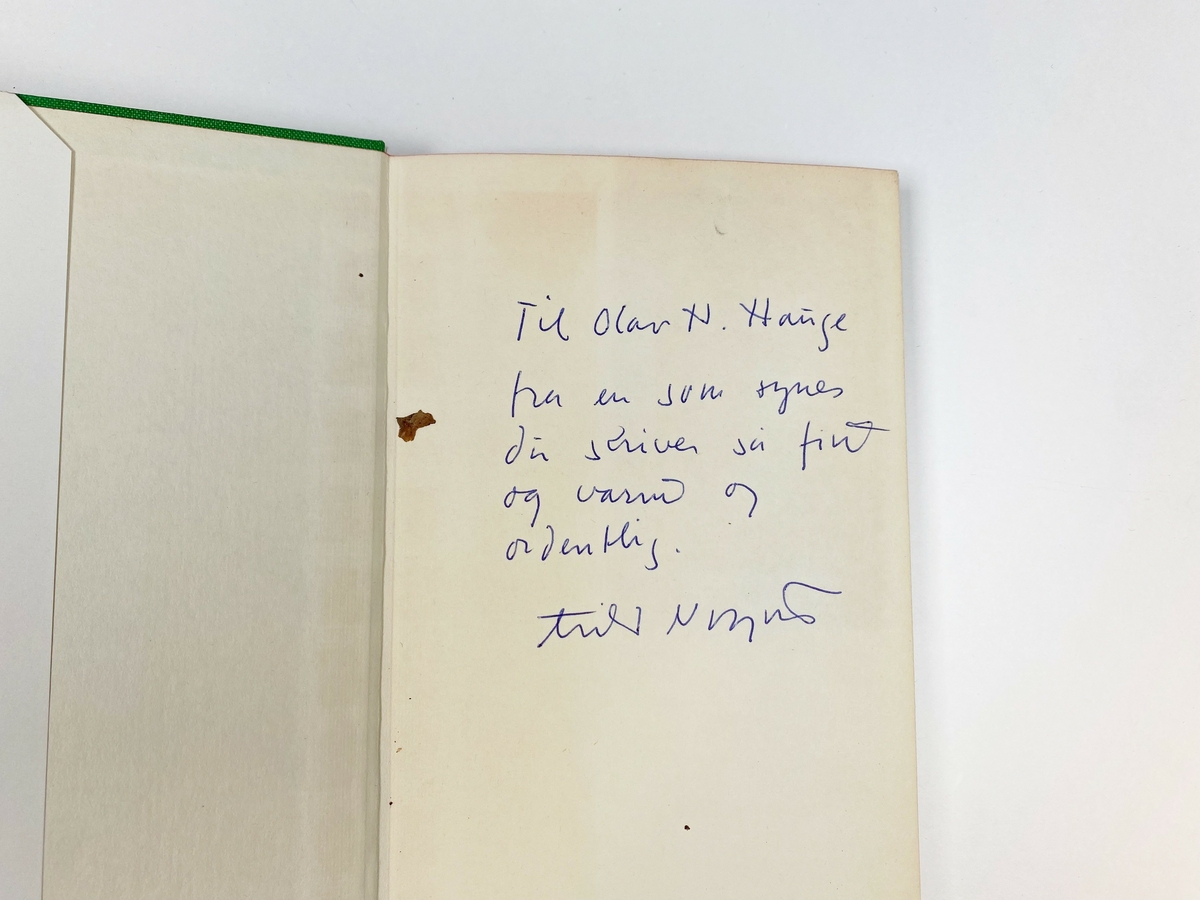 Til Olav H. Hauge
fra en som synes
du skriver så fint
og varmt og
ordentlig.
Arild Nyquist